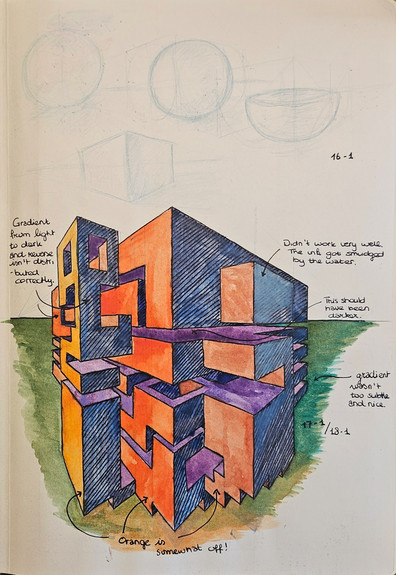 16-1
Gradient
from light
to dark
and reverse
isn't distri
-buted
correctly.
Didn't work very well.
The ink got smudged
by the water.
This should
have been
darker.
gradient
wasn't
too subtle
and nice
17-1/18-1
Orange is
somewhat off!